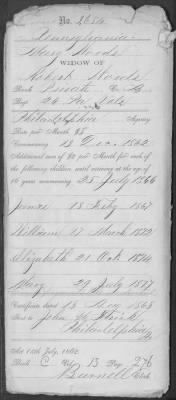 No. 1654
Pennsylvania
Mary Woods
WIDOW OF
Robert Woods
Rank Private Co.
Reg't 24 Pa Vols
Philadelphia Agency
Rate per Month $8
Commencing 13 Dec. 1862
Additional sum of $2 per month for each of
the following children, until arriving at the age of
16 years commencing 25 July 1866
James 18 July 1867
William 17 March 1872
Elizabeth 21 Oct 1874
Mary 29 July 1877
Certificate dated 13
Sent to John
Philadelphia
Act 14th July, 1862.
Book C Vol. 13 Page 276
Clerk